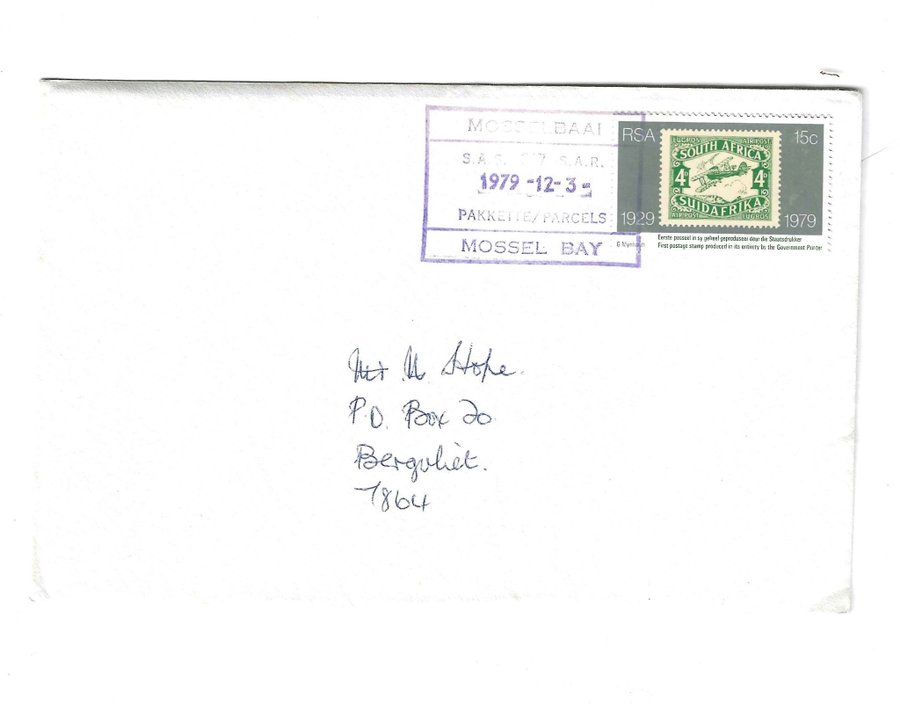 MOSSELBAAI
S.A.S. S.A.R.
1979 -12- 3
PAKKETTE/PARCELS
MOSSEL BAY
RSA 15c
LUGPOS AIR POST
SOUTH AFRICA
4D 4D
SUIDAFRIKA
AIR POST LUGPOS
1929 1979
Eerste posseël in sy geheel geproduseer deur die Staatsdrukker
First postage stamp produced in its entirety by the Government Printer
Mr Hope.
P.O. Box 20
Bergvliet.
7864